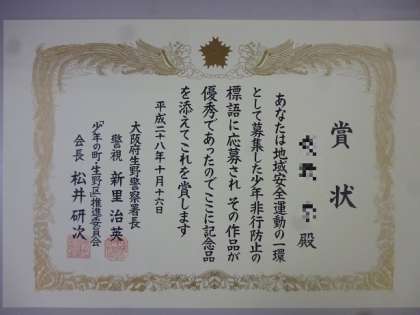 賞状
殿
あなたは地域安全運動の一環
として募集した少年非行防止の
標語に応募され その作品が
優秀であったのでここに記念品
を添えてこれを賞します
平成二十八年十月十六日
大阪府生野警察署長
警視 新里 治英
"少年の町・生野区"推進委員会
会長 松井 研次